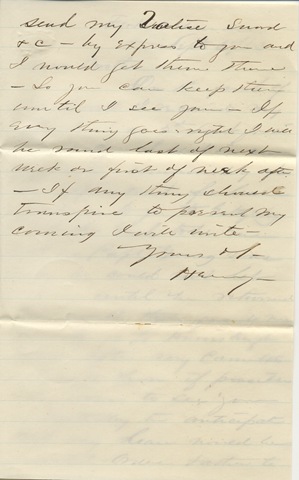 send my Valise Sword
&c – by express to you and
I would get them there
– So you can keep them
until I see you – If
every thing goes right I will
be round last of next
week or first of week aft-
– If any thing should
transpire to prevent my
coming I will write –
Yours &c –
Harry –